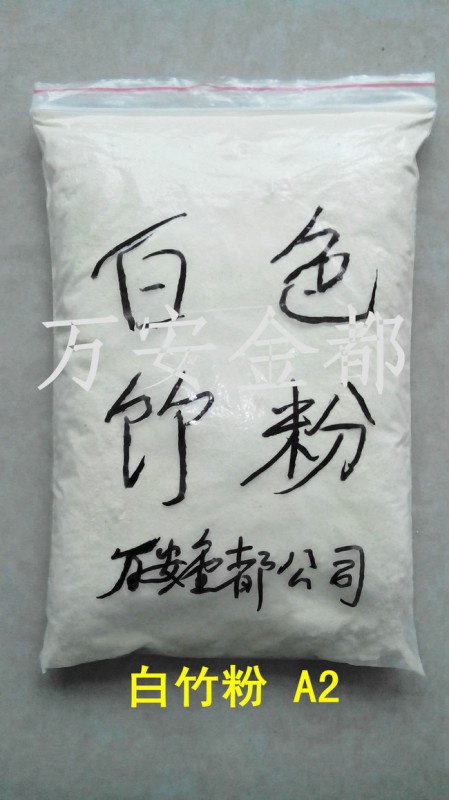 白色
万安金都
竹粉
万安金都公司
白竹粉 A2